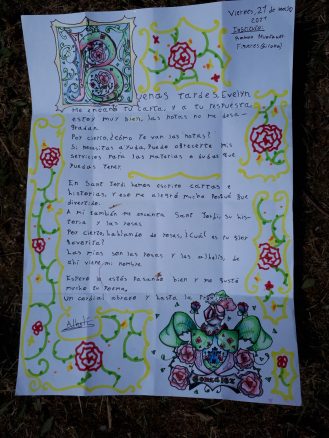 Viernes, 21 de mayo
2021
Dirección:
Figueres (Girona)
Buenas Tardes, Evelyn
Me encantó tu carta, y a tu respuesta,
estoy muy bien, las notas no me desa-
gradan.
Por cierto, ¿cómo te van las notas?
Si necesitas ayuda, puedo ofrecerte mis
servicios para las materias o dudas que
puedas tener.
En Sant Jordi, hemos escrito cartas e
historias, y eso me alegró mucho porque fue
divertido.
A mi también me encanta Sant Jordi, su his-
toria y las rosas
Por cierto, hablando de rosas, ¿Cuál es tu flor
favorita?
Las mías son las rosas y las
ahí viene mi nombre.
Espero lo estés pasando bien y me gustó
mucho tu poema.
Un cordial abrazo y hasta la
González